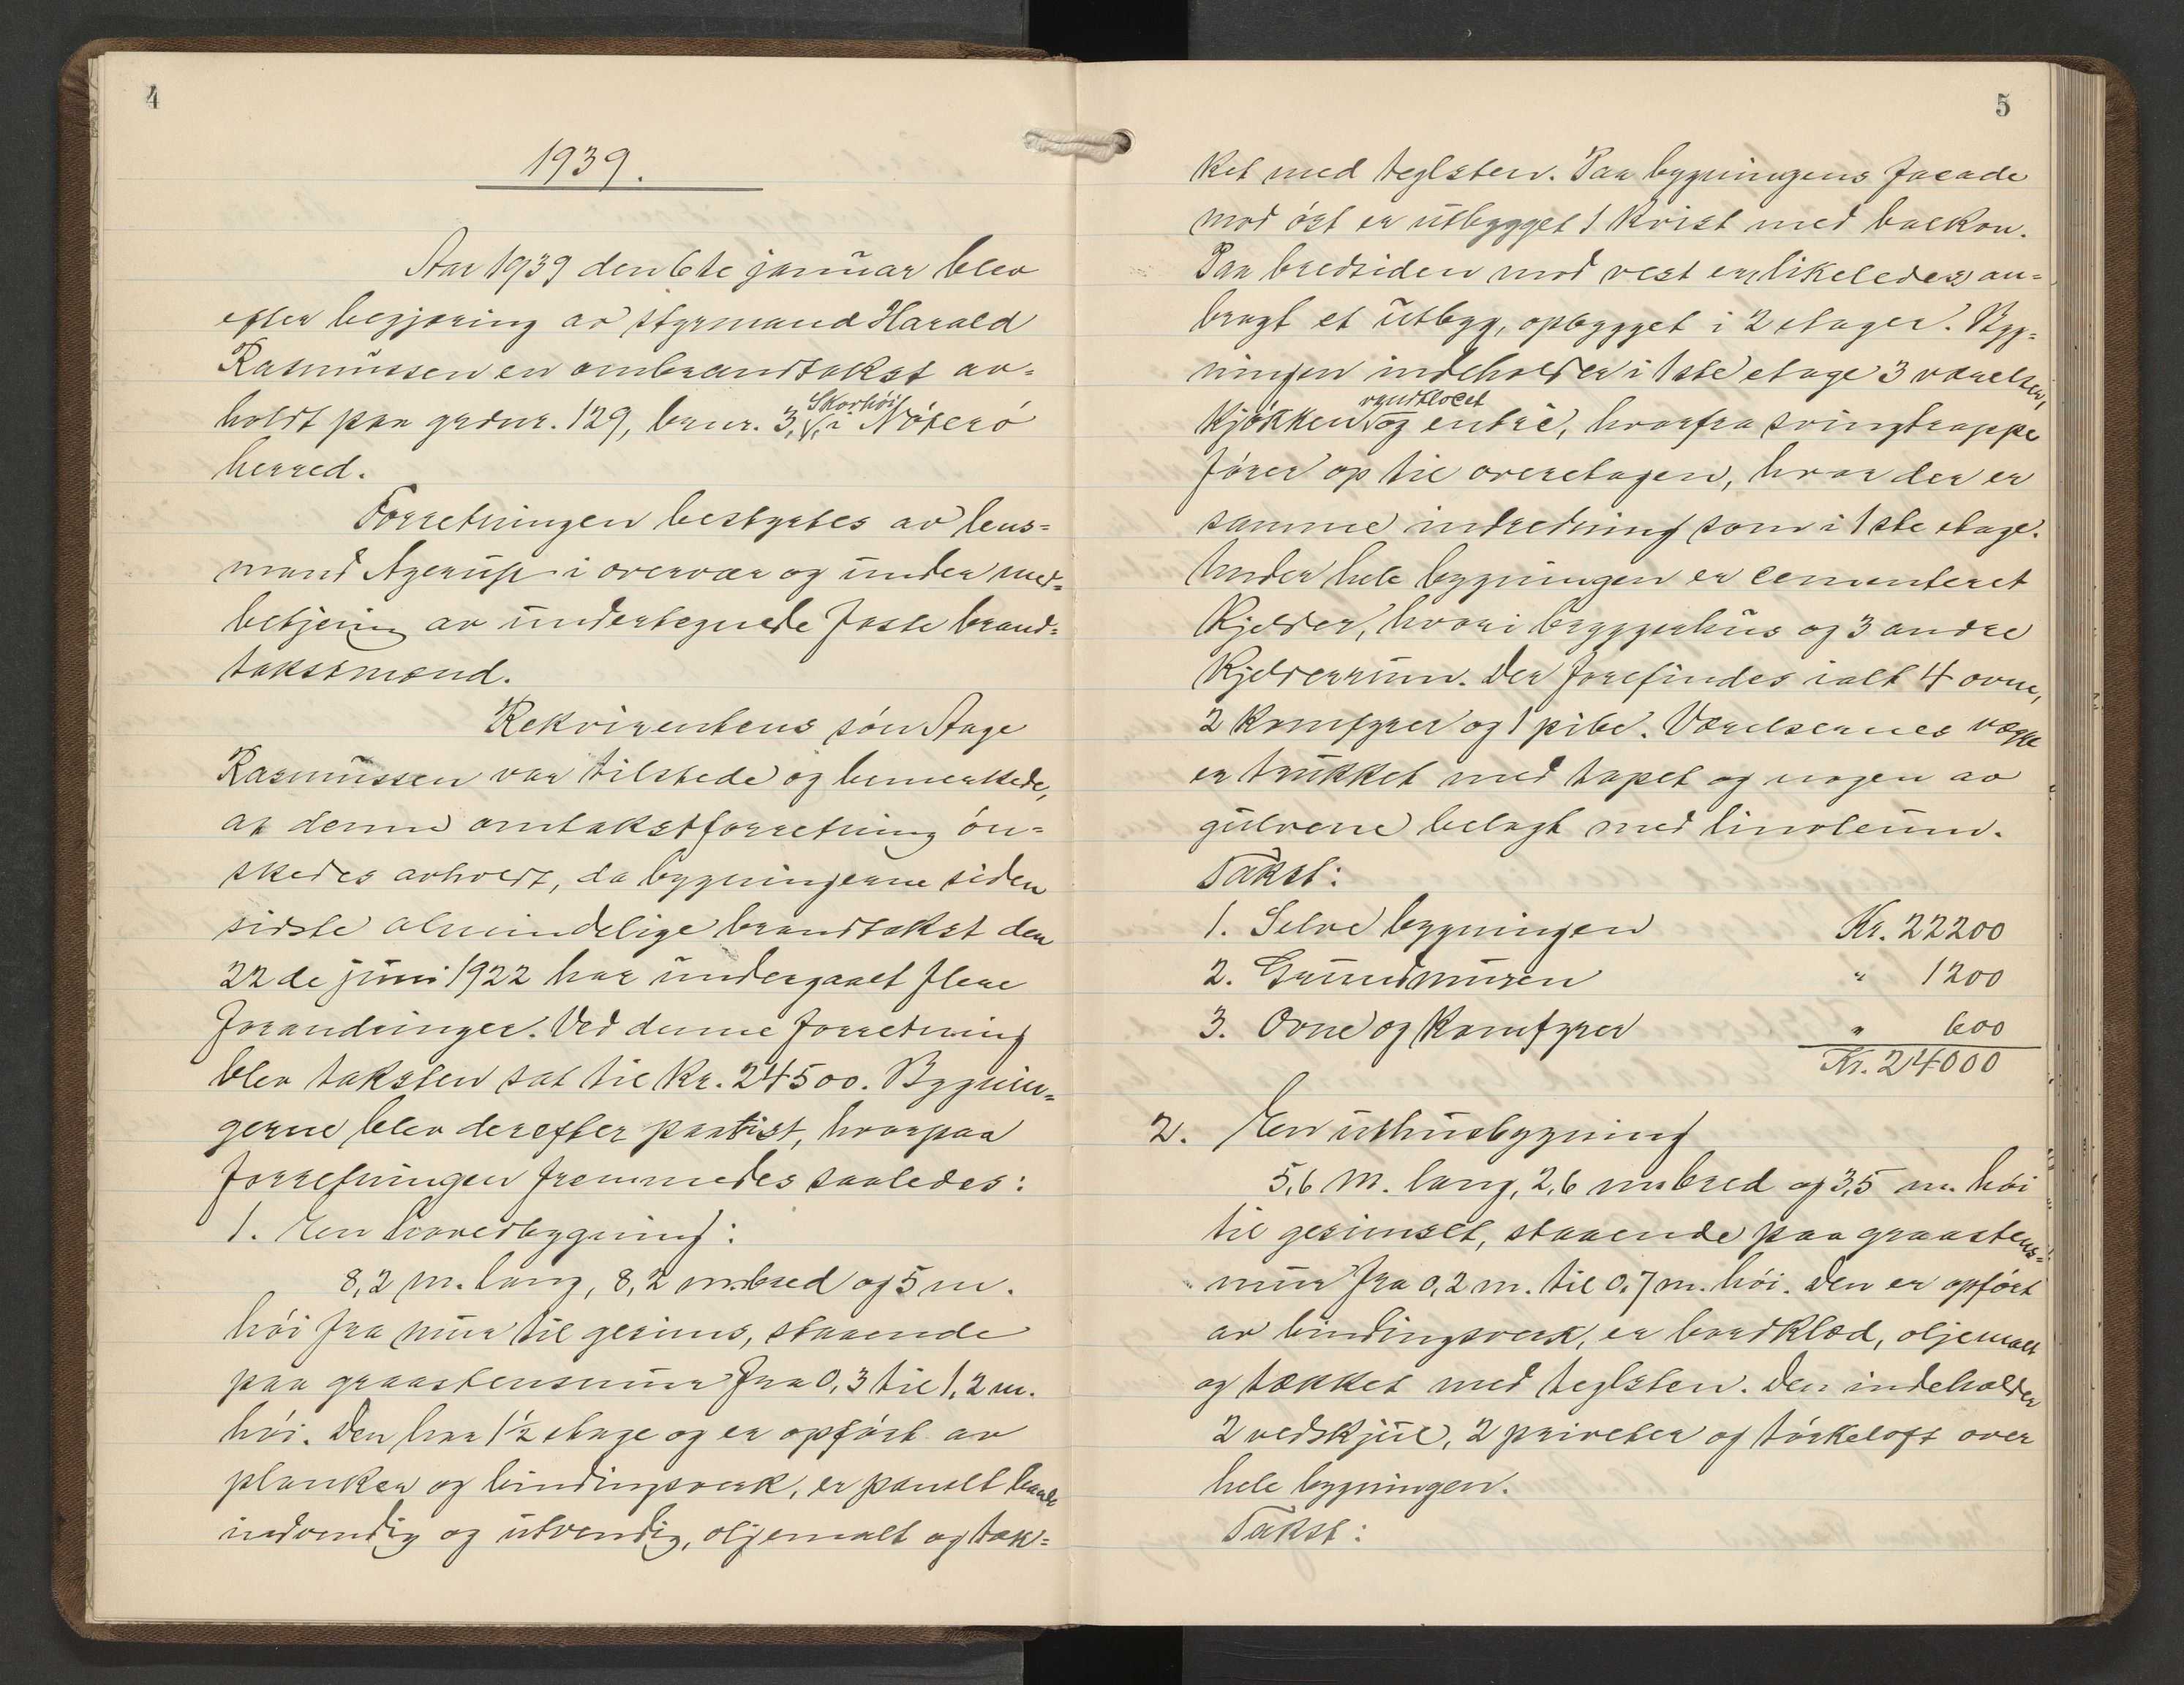 4
1939.
Aar 1939 den 6te januar blev
efter begjæring av styrmand Harald
Rasmussen en ombrandtakst av=
holdt paa grdnr. 129, brnr. 3, Skovhöi, i Nöterö
herred.
Forretningen bestyrtes av lens=
mand Agerup i overvær og under med=
betjening av undertegnede faste brand=
takstmænd.
Rekvirentens sön Aage
Rasmussen var tilstede og bemerkede,
at denne omtakstforretning ön=
skedes avholdt, da bygningerne siden
sidste almindelige brandtakst den
22de juni 1922 har undergaat flere
forandringer. Ved denne forretning
blev taksten sat til Kr. 24500. Bygnin=
gerne blev derefter besigtiget, hvorpaa
forretningen fremmedes saaledes:
1. En hovedbygning:
8,2 m. lang, 8,2 m. bred og 5 m.
höi fra mur til gesims, staaende
paa graastensmur fra 0,3 til 1,2 m.
höi. Den har 1½ etage og er opfört av
planker og bindingsverk, er panelt baade
indvendig og utvendig, oljemalt og tæk=
5
ket med teglsten. Paa bygningens facade
mod öst er utbygget 1 kvist med balkon.
Paa bredsiden mod vest er likeledes an=
bragt et utbyg, opbygget i 2 etager. Byg=
ningen indeholder i 1ste etage 3 værelser,
kjökken, vandkloset og entré, hvorfra svingtrappe
förer op til overetagen, hvor der er
samme indredning som i 1ste etage.
Under hele bygningen er cementeret
kjelder, hvori bryggerhus og 3 andre
kjelderrum. Der forefindes ialt 4 ovne,
2 komfyrer og 1 pibe. Værelsernes vægge
er trukket med tapet og nogen av
gulvene belagt med linoleum.
Takst:
1. Selve bygningen Kr. 22200
2. Grundmuren " 1200
3. Ovne og komfyrer " 600
Kr. 24000
2. En uthusbygning
5,6 m. lang, 2,6 m. bred og 3,5 m. höi
til gesimset, staaende paa graastens=
mur fra 0,2 m. til 0,7 m. höi. Den er opfört
av bindingsverk, er bordklæd, oljemalt
og tækket med teglsten. Den indeholder
2 vedskjul, 2 priveter og törkeloft over
hele bygningen.
Takst: